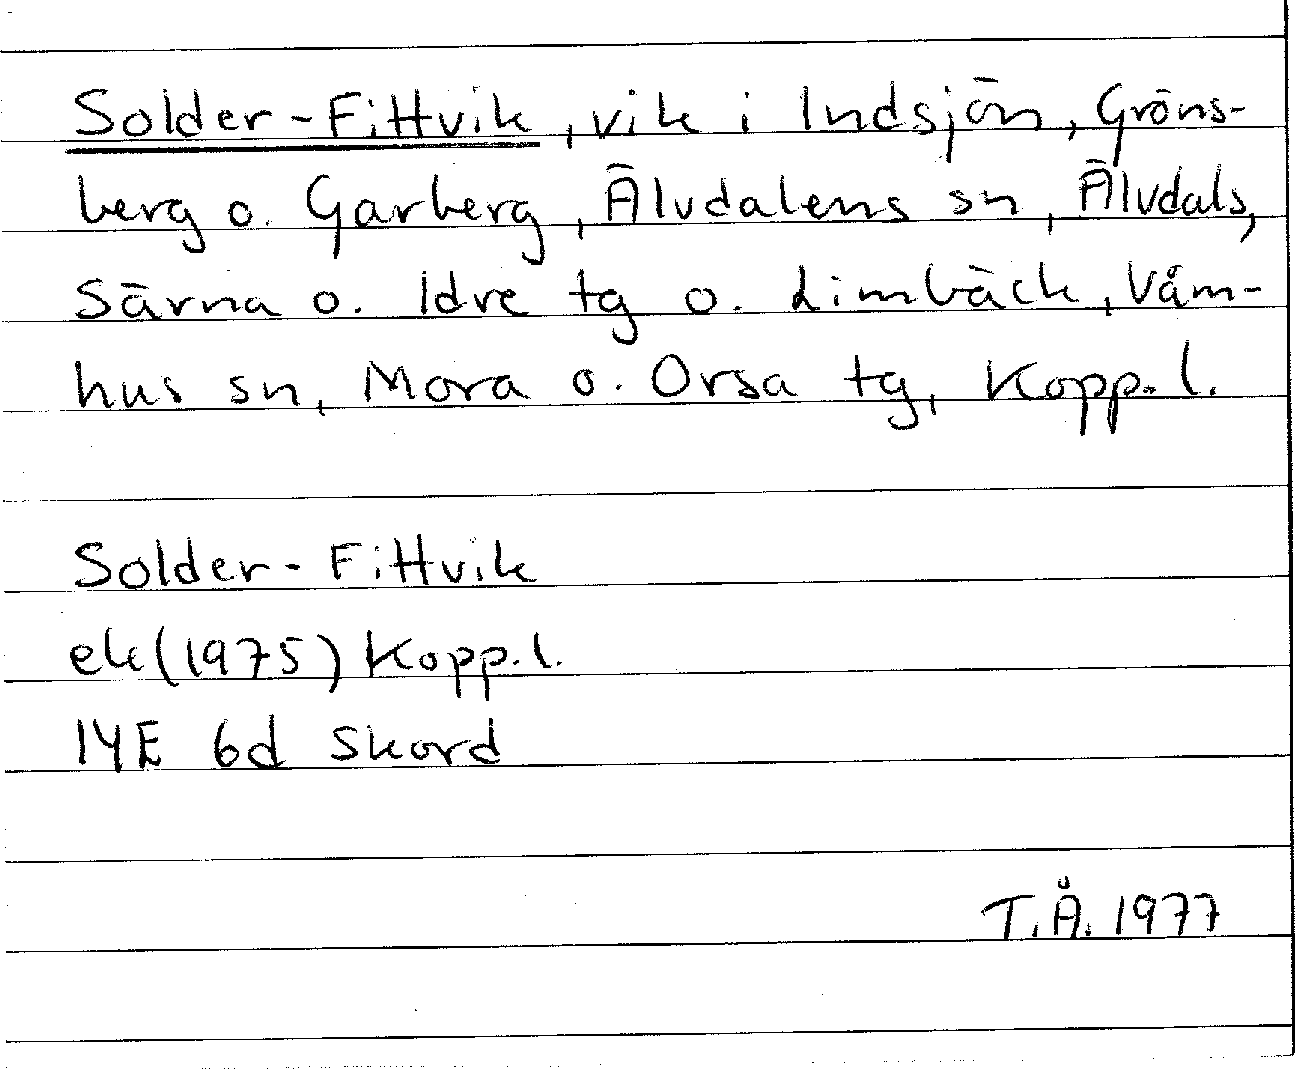 Solder-Fittvik, vik i Indsjön, Gröns-
berg o. Garberg, Älvdalens sn, Älvdals,
Särna o. Idre tg o. Limbäck, Våm-
hus sn, Mora o. Orsa tg, Kopp. l.
Solder-Fittvik
ek (1975) Kopp. l.
14E 6d Skord
T.Å. 1977